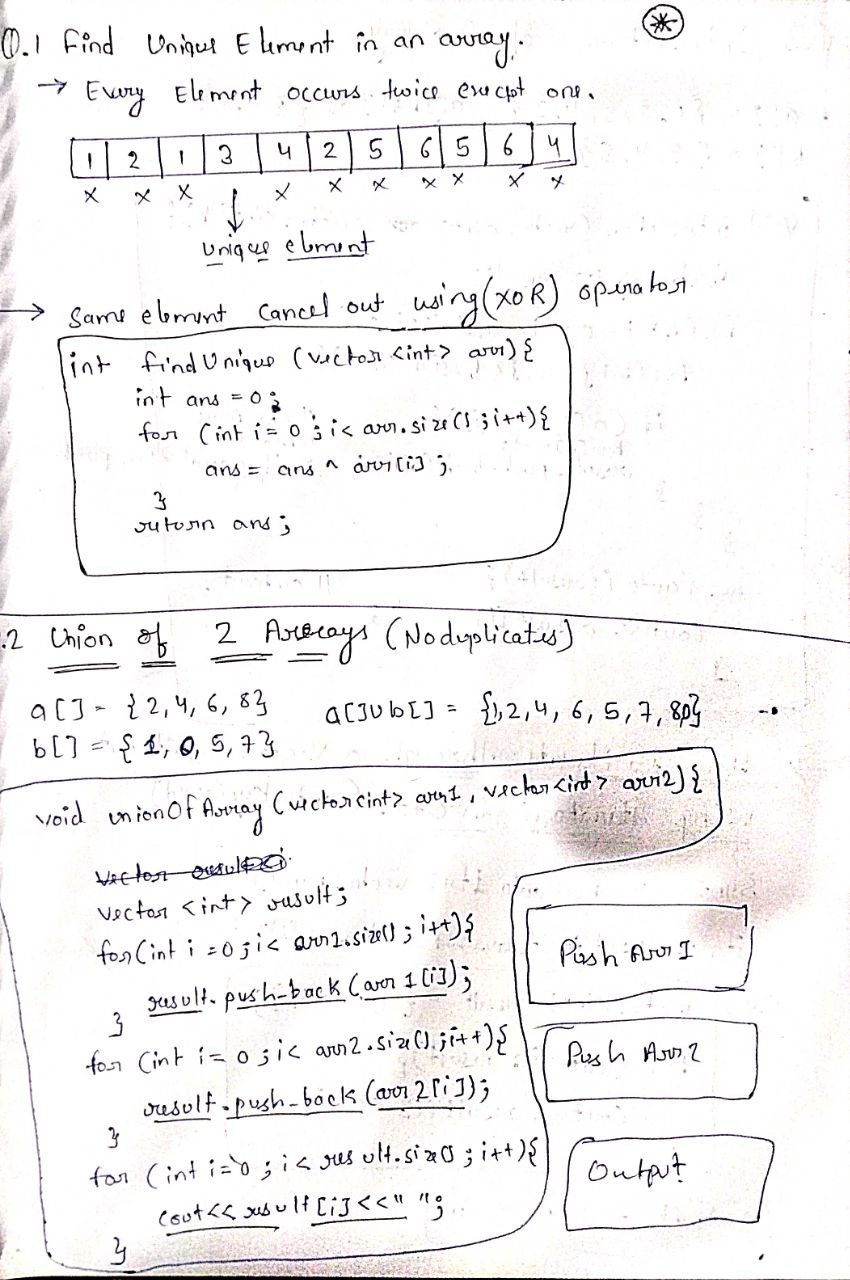 Q.1 Find Unique Element in an array.
→ Every Element occurs twice except one.
1 2 1 3 4 2 5 6 5 6 4
x x x x x x x x x x
↓
unique element
→ Same element Cancel out using (XOR) operator
int findUnique (vector <int> arr) {
int ans = 0;
for (int i = 0; i < arr.size(); i++) {
ans = ans ^ arr[i];
}
return ans;
.2 Union of 2 Arrays (No duplicates)
a[] = {2, 4, 6, 8} a[] U b[] = {1, 2, 4, 6, 5, 7, 8, 0}
b[] = {1, 0, 5, 7}
void unionOfArray (vector<int> arr1, vector<int> arr2) {
vector <int> result;
for (int i = 0; i < arr1.size(); i++) {
result.push_back (arr1[i]);
}
for (int i = 0; i < arr2.size(); i++) {
result.push_back (arr2[i]);
}
for (int i = 0; i < result.size(); i++) {
cout << result[i] << " ";
}
Push Arr1
Push Arr2
Output